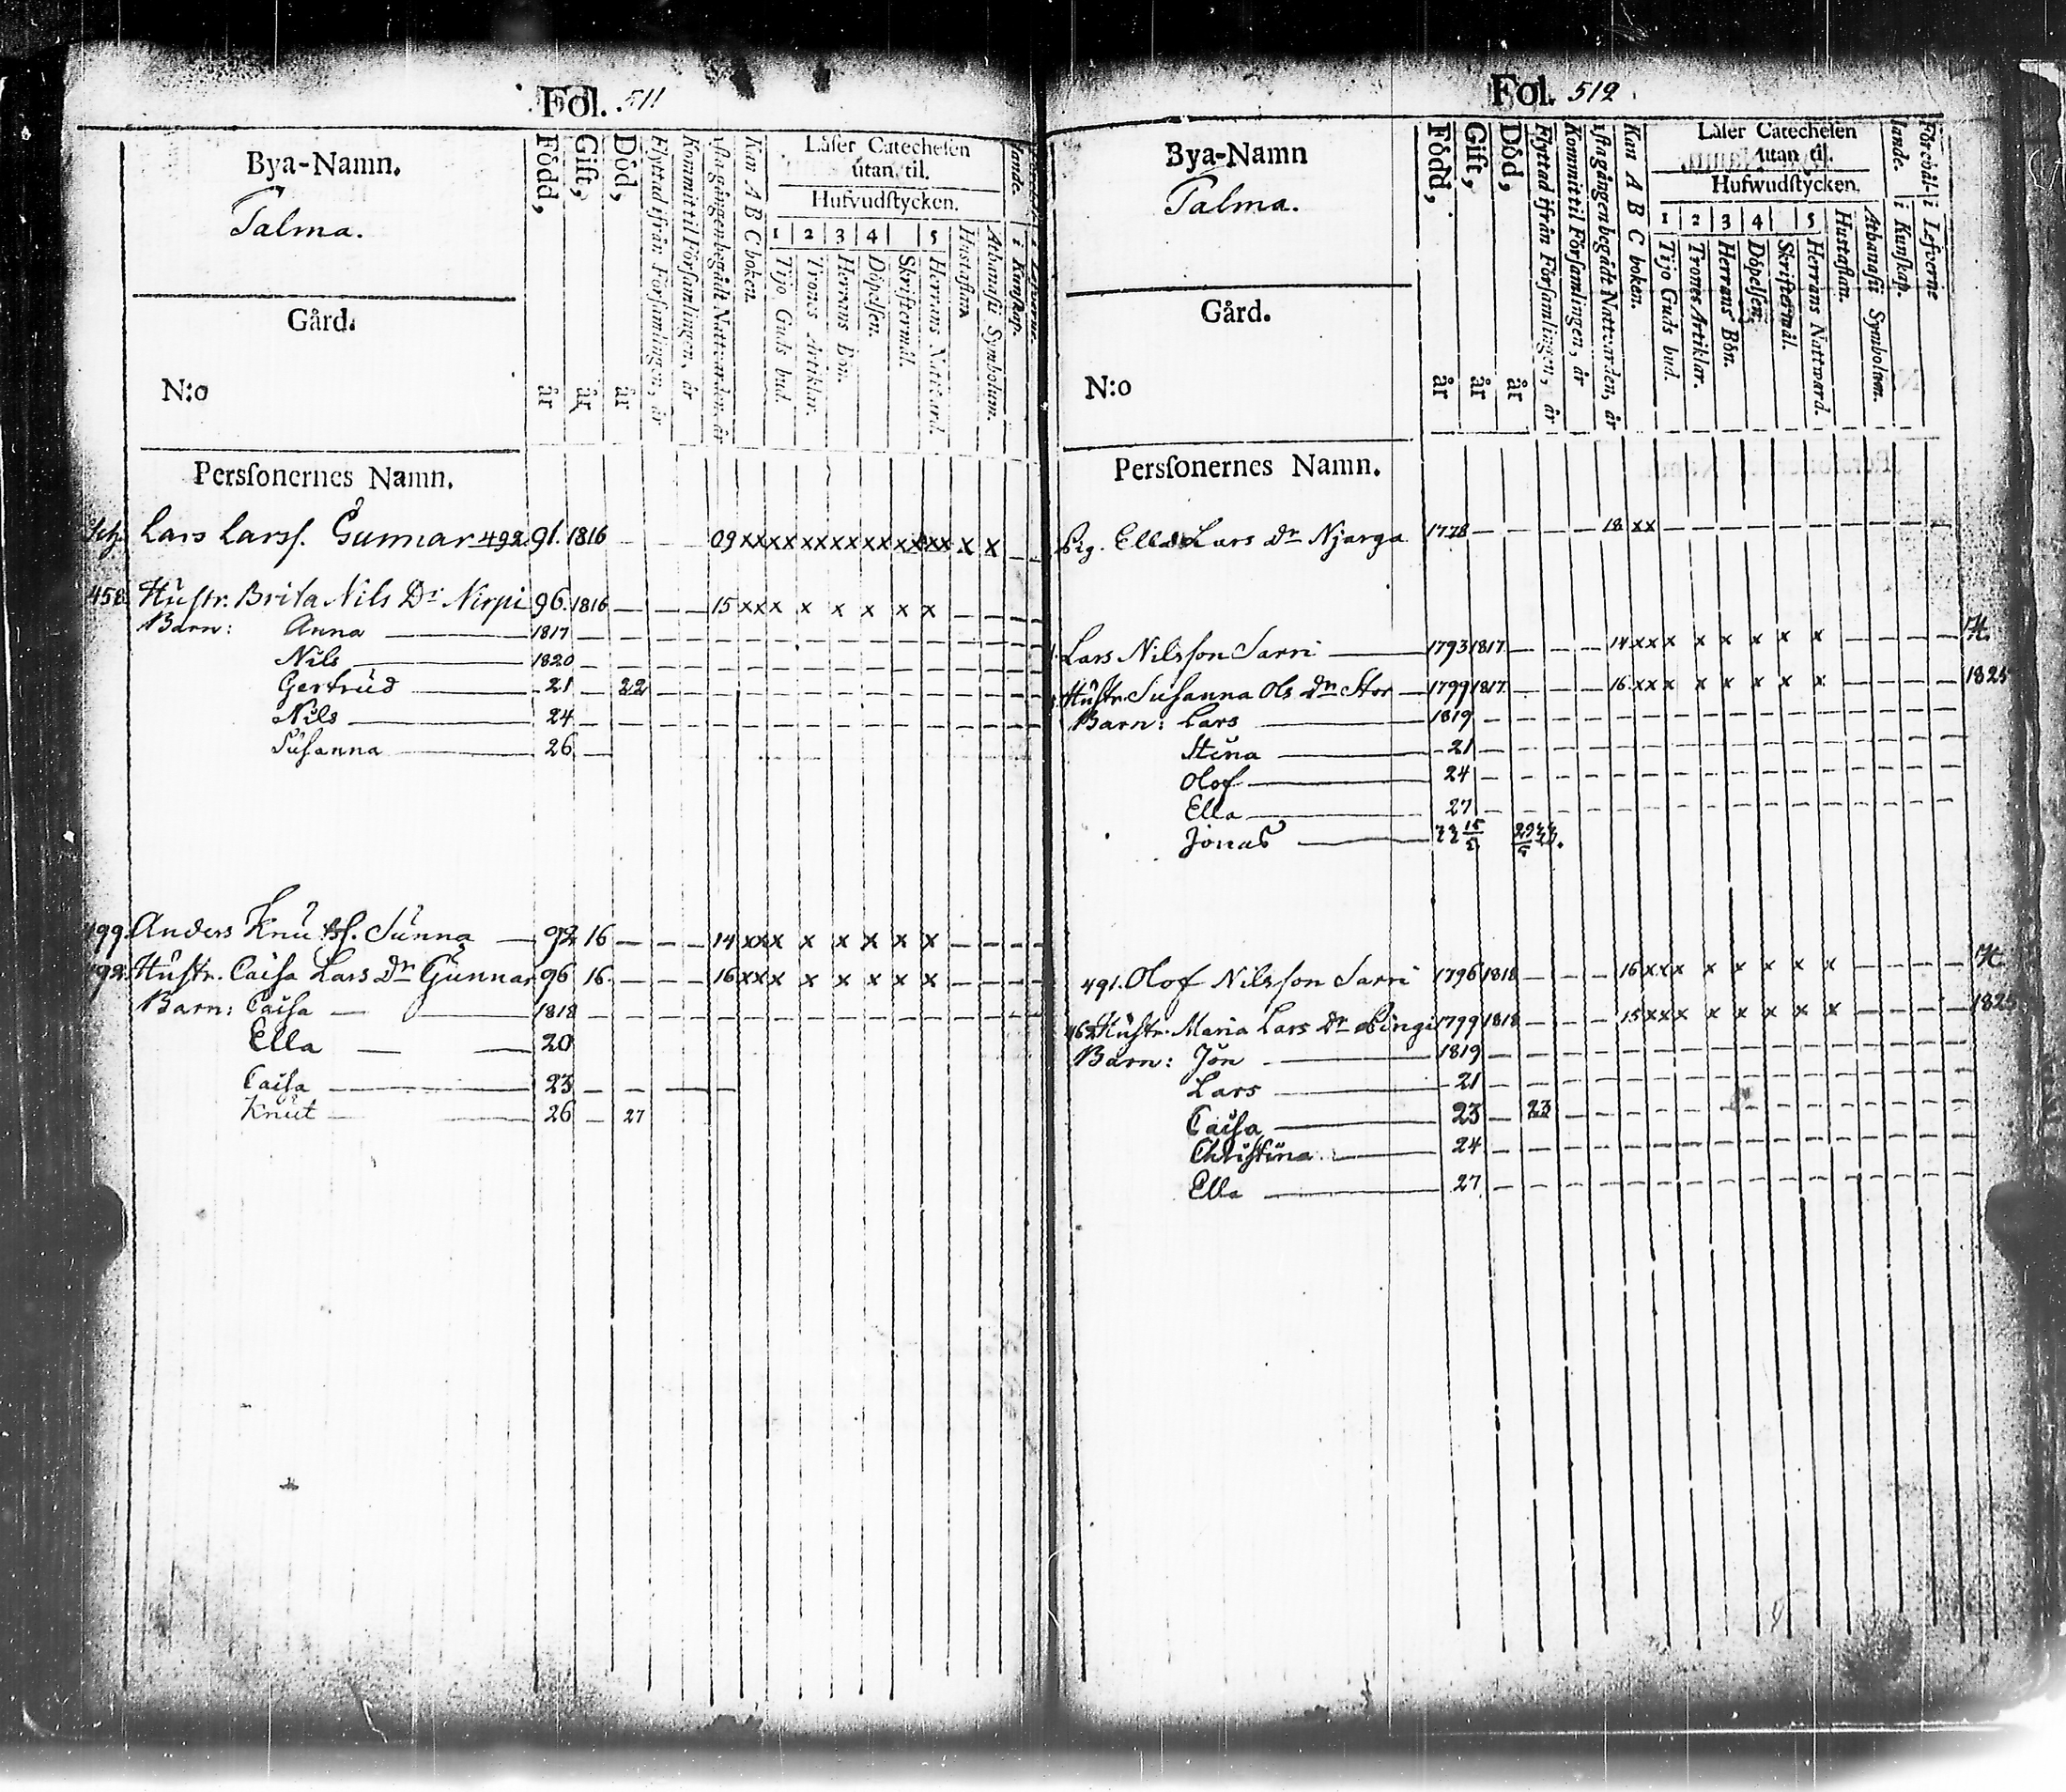 Fol. 511
Bya-Namn.
Talma.
Gård.
N:o
Persſonernes Namn.
Född, år
Gift, år
Död, år
Flyttad ifrån Församlingen, år
Kommit til Församlingen, år
1sta gången begådt Nattvarden, år
Kan A B C boken.
Läſer Catecheſen
utan til.
Hufvudſtycken.
1 2 3 4 5
Tijo Guds bud.
Trones Artiklar.
Herrans Bön.
Döpelſen.
Skriftermål.
Herrans Nattvard.
Hustaflan
Athanaſii Symbolum.
i Kunſkap.
Lars Larsſ. Gunnar 492. 91. 1816 — — — 09 xx xx xx xx xx xx xx x x —
458 Huſtr. Brita Nils Dr Nirpi 96. 1816 — — — 15 xx x x x x x x — —
Barn: Anna — 1817 —
Nils — 1820 —
Gertrud — 21 — 22 —
Nils — 24 —
Suſanna — 26 —
499. Anders Knutsſ. Sunna — 92 16 — — — 14 xx x x x x x x — —
492. Huſtr. Caiſa Lars Dr Gunnar 96 16. — — — 16 xx x x x x x x — —
Barn: Caiſa — 1818 —
Ella — 20
Caiſa — 23 — — —
Knut — 26 — 27
Fol. 512
Bya-Namn
Talma.
Gård.
N:o
Persſonernes Namn.
Född, år
Gift, år
Död, år
Flyttad ifrån Församlingen, år
Kommit til Församlingen, år
1sta gången begådt Nattvarden, år
Kan A B C boken.
Läſer Catecheſen
utan til.
Hufwudſtycken.
1 2 3 4 5
Tijo Guds bud.
Trones Artiklar.
Herrans Bön.
Döpelſen.
Skriftermål.
Herrans Nattvard.
Hustaflan.
Athanaſii Symbolum.
Förehållande.
i Kunſkap.
i Lefverne
Pig. Ella Lars Dr Njarga 1778 — — — — 18 xx —
Lars Nilsſon Sarri — 1793 1817 — — — 14 xx x x x x x x — —
Huſtr. Suſanna Ols Dr Stor — 1799 1817. — — — 16 xx x x x x x x — — 1825
Barn: Lars — 1819 —
Stina — 21 —
Olof — 24 —
Ella — 27 —
Jonas —
491. Olof Nilsſon Sarri 1796 1818 — — — 16 xx x x x x x x — —
462 Huſtr. Maria Lars Dr 1799 1818 — — — 15 xx x x x x x x — —
Barn: Jon — 1819 —
Lars — 21 —
Caiſa — 23 — 23 —
Chriſtina — 24 —
Ella — 27 —